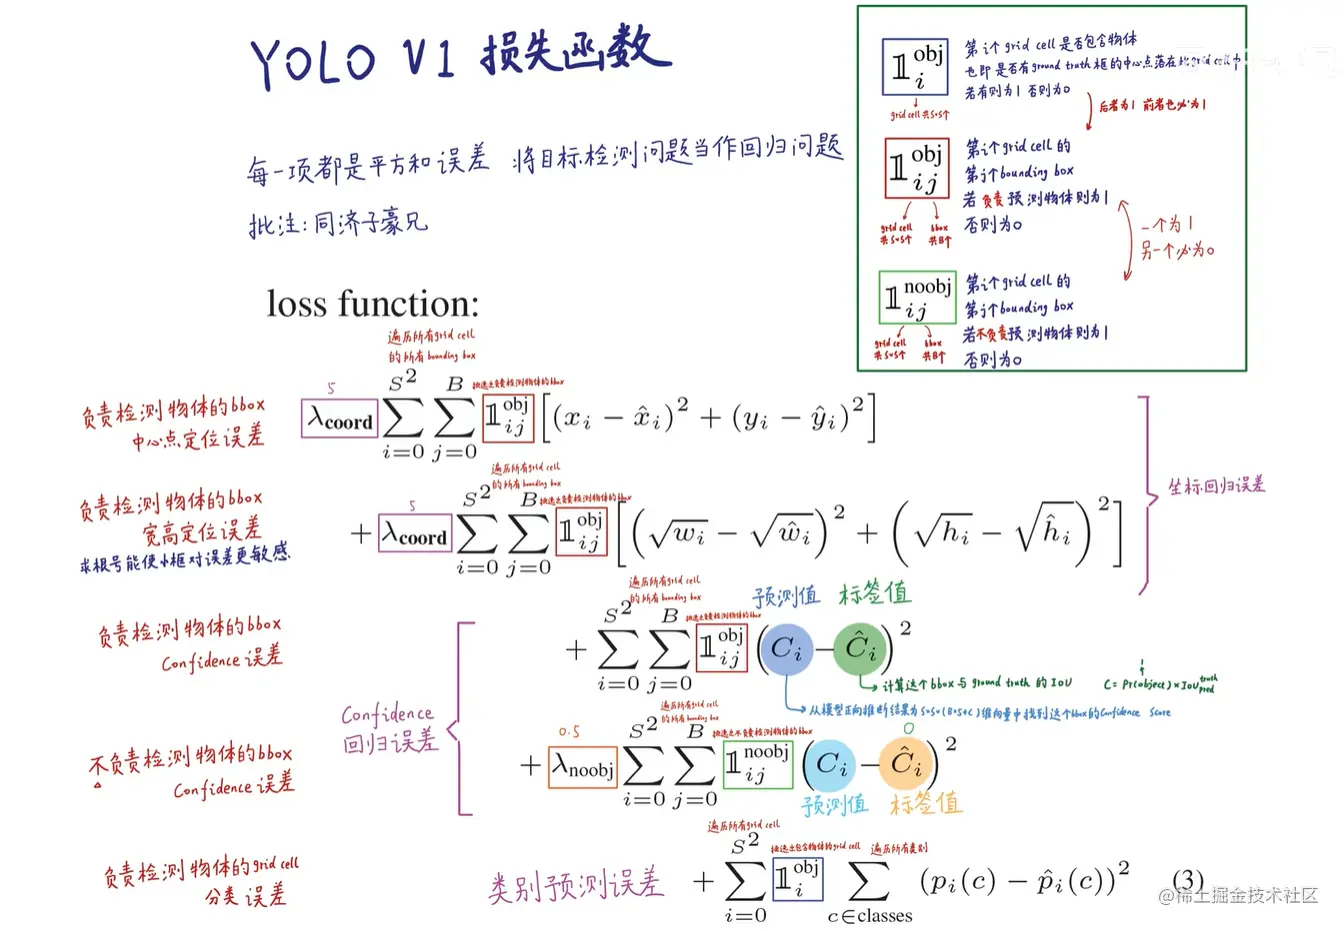 YOLO V1 损失函数
每一项都是平方和误差 将目标检测问题当作回归问题
批注:同济子豪兄
𝟙 obj i
grid cell 共S*S个
第i个grid cell是否包含物体
也即是否有ground truth框的中心点落在此grid cell中
若有则为1 否则为0
后者为1 前者也必为1
𝟙 obj ij
grid cell 共S*S个
bbox 共B个
第i个grid cell的
第j个bounding box
若负责预测物体则为1
否则为0
一个为1
另一个必为0
𝟙 noobj ij
grid cell 共S*S个
bbox 共B个
第i个grid cell的
第j个bounding box
若不负责预测物体则为1
否则为0
loss function:
遍历所有grid cell
的所有bounding box
挑选出负责检测物体的bbox
5
负责检测物体的bbox
中心点定位误差
λcoord ∑_{i=0}^{S²} ∑_{j=0}^{B} 𝟙_{ij}^{obj} [(x_i − x̂_i)² + (y_i − ŷ_i)²]
遍历所有grid cell
的所有bounding box
挑选出负责检测物体的bbox
5
负责检测物体的bbox
宽高定位误差
求根号能使小框对误差更敏感
+ λcoord ∑_{i=0}^{S²} ∑_{j=0}^{B} 𝟙_{ij}^{obj} [(√w_i − √ŵ_i)² + (√h_i − √ĥ_i)²]
坐标回归误差
遍历所有grid cell
的所有bounding box
挑选出负责检测物体的bbox
预测值 标签值
负责检测物体的bbox
Confidence 误差
+ ∑_{i=0}^{S²} ∑_{j=0}^{B} 𝟙_{ij}^{obj} (C_i − Ĉ_i)²
计算这个bbox与ground truth的IOU
C = Pr(object) * IOU truth pred
从模型正向推断结果为S*S*(B*5+C)维向量中找到这个bbox的Confidence Score
Confidence
回归误差
遍历所有grid cell
的所有bounding box
挑选出不负责检测物体的bbox
0.5
0
不负责检测物体的bbox
Confidence 误差
+ λnoobj ∑_{i=0}^{S²} ∑_{j=0}^{B} 𝟙_{ij}^{noobj} (C_i − Ĉ_i)²
预测值 标签值
遍历所有grid cell
挑选出包含物体的grid cell
遍历所有类别
负责检测物体的grid cell
分类误差
类别预测误差
+ ∑_{i=0}^{S²} 𝟙_{i}^{obj} ∑_{c∈classes} (p_i(c) − p̂_i(c))² (3)
@稀土掘金技术社区